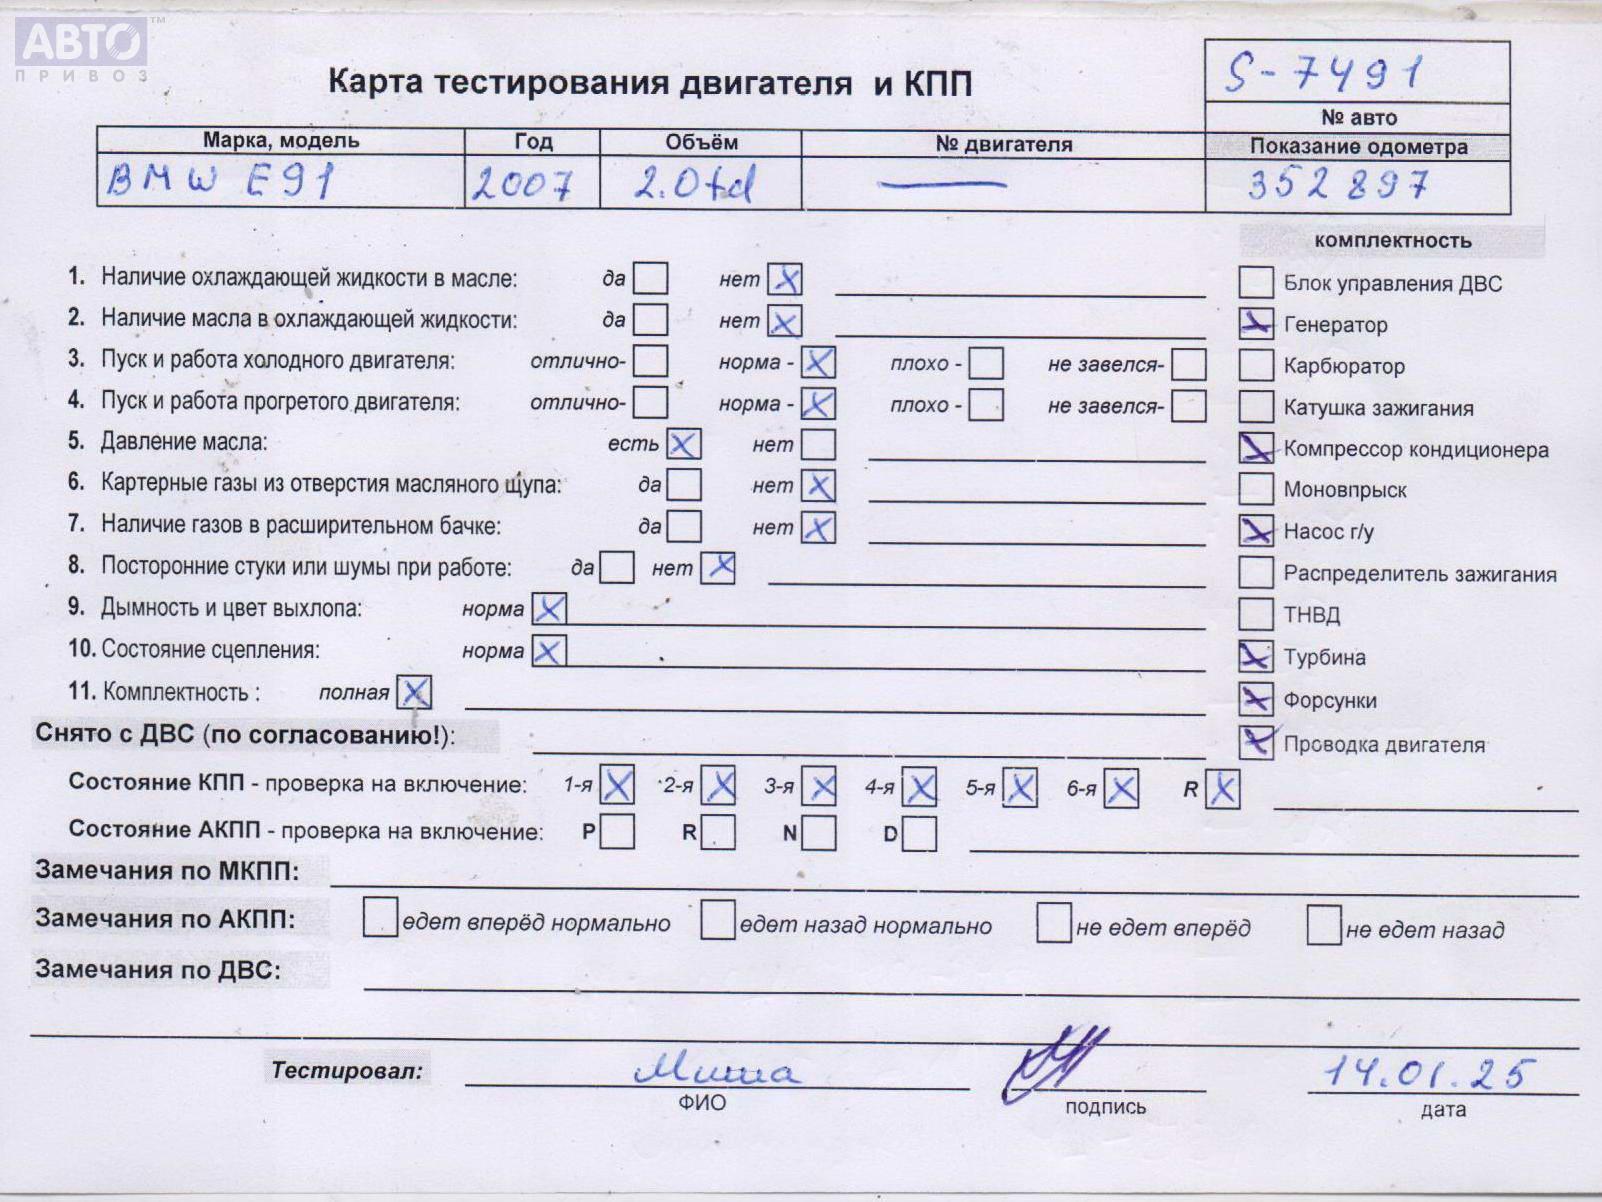 АВТО™
ПРИВОЗ
S-7491
Карта тестирования двигателя и КПП
№ авто
Марка, модель Год Объём № двигателя Показание одометра
BMW E91 2007 2.0td — 352897
комплектность
1. Наличие охлаждающей жидкости в масле: да нет X
Блок управления ДВС
2. Наличие масла в охлаждающей жидкости: да нет X
X Генератор
3. Пуск и работа холодного двигателя: отлично- норма - X плохо - не завелся-
Карбюратор
4. Пуск и работа прогретого двигателя: отлично- норма - X плохо - не завелся-
Катушка зажигания
5. Давление масла: есть X нет
X Компрессор кондиционера
6. Картерные газы из отверстия масляного щупа: да нет X
Моновпрыск
7. Наличие газов в расширительном бачке: да нет X
X Насос г/у
8. Посторонние стуки или шумы при работе: да нет X
Распределитель зажигания
9. Дымность и цвет выхлопа: норма X
ТНВД
10. Состояние сцепления: норма X
X Турбина
11. Комплектность : полная X
X Форсунки
Снято с ДВС (по согласованию!):
X Проводка двигателя
Состояние КПП - проверка на включение: 1-я X 2-я X 3-я X 4-я X 5-я X 6-я X R X
Состояние АКПП - проверка на включение: P R N D
Замечания по МКПП:
Замечания по АКПП: едет вперёд нормально едет назад нормально не едет вперёд не едет назад
Замечания по ДВС:
Тестировал: Миша 14.01.25
ФИО подпись дата